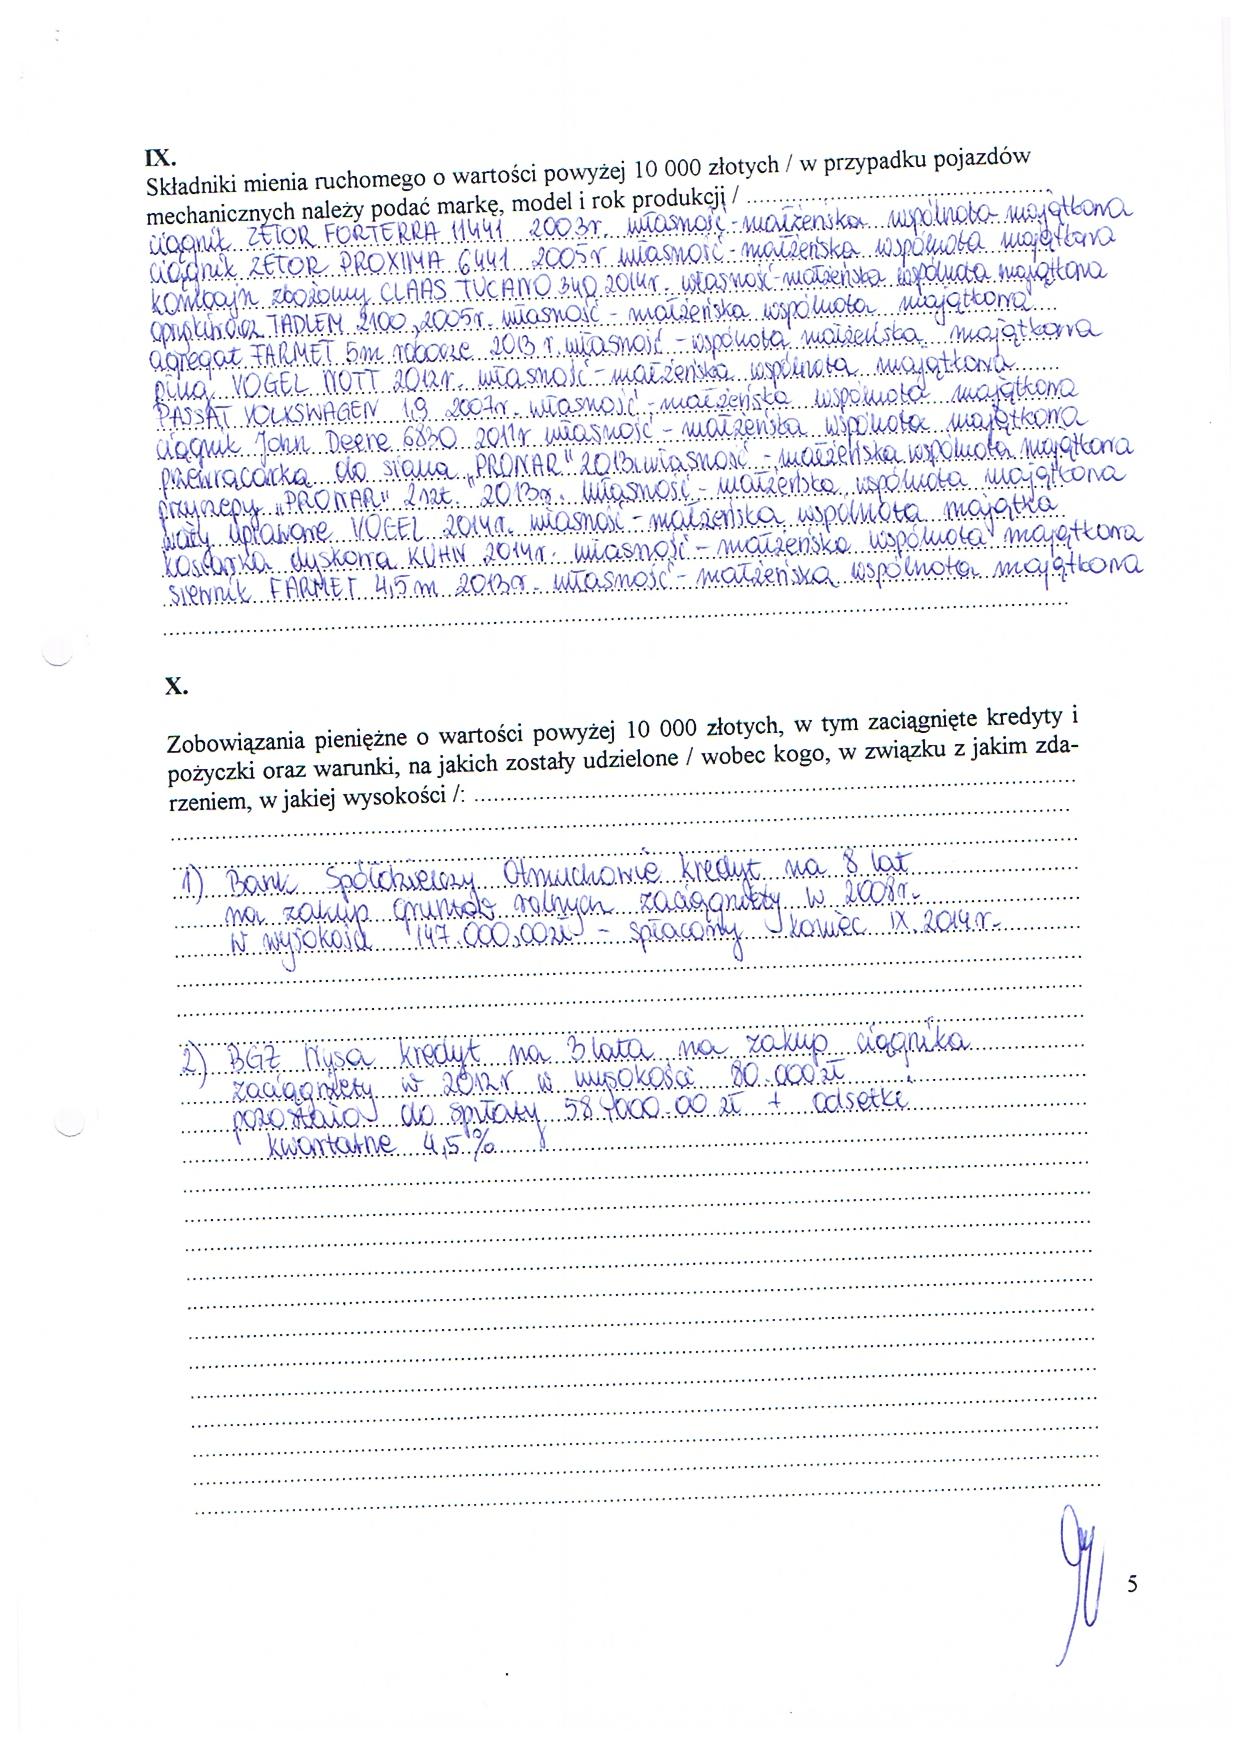 IX.
Składniki mienia ruchomego o wartości powyżej 10 000 złotych / w przypadku pojazdów
mechanicznych należy podać markę, model i rok produkcji / ...
ciągnik ZETOR FORTERRA 11441 2003r. własność - małżeńska wspólnota majątkowa
ciągnik ZETOR PROXIMA 6441 2005r własność - małżeńska wspólnota majątkowa
kombajn zbożowy CLAAS TUCANO 340 2014r. własność - małżeńska wspólnota majątkowa
opryskiwacz TADLEM 2100, 2005r. własność - małżeńska wspólnota majątkowa
agregat FARMET 5m robocze 2013 r. własność - wspólnota małżeńska majątkowa
pług VOGEL NOTT 2012r. własność - małżeńska wspólnota majątkowa
PASSAT VOLKSWAGEN 1,9 2007r. własność - małżeńska wspólnota majątkowa
ciągnik John Deere 6830 2011r własność - małżeńska wspólnota majątkowa
przewracarka do siana "PRONAR" 2013r własność - małżeńska wspólnota majątkowa
przyczepy "PRONAR" 2 szt. 2013r. własność - małżeńska wspólnota majątkowa
wały uprawowe VOGEL 2014r. własność - małżeńska wspólnota majątka
kosiarka dyskowa KUHN 2014r. własność - małżeńska wspólnota majątkowa
siewnik FARMET 4,5m 2013r. własność - małżeńska wspólnota majątkowa
X.
Zobowiązania pieniężne o wartości powyżej 10 000 złotych, w tym zaciągnięte kredyty i
pożyczki oraz warunki, na jakich zostały udzielone / wobec kogo, w związku z jakim zda-
rzeniem, w jakiej wysokości /: ...
1) Bank Spółdzielczy Otmuchowie kredyt na 8 lat
na zakup gruntów rolnych zaciągnięty w 2008r.
w wysokości 147.000,00zł - spłacony koniec IX.2014r.
2) BGŻ Nysa kredyt na 3 lata na zakup ciągnika
zaciągnięty w 2012r w wysokości 80.000 zł
pozostało do spłaty 58.000.00 zł + odsetki
kwartalne 4,5%
5